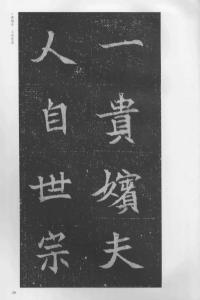 一貴嬪夫
人自世宗